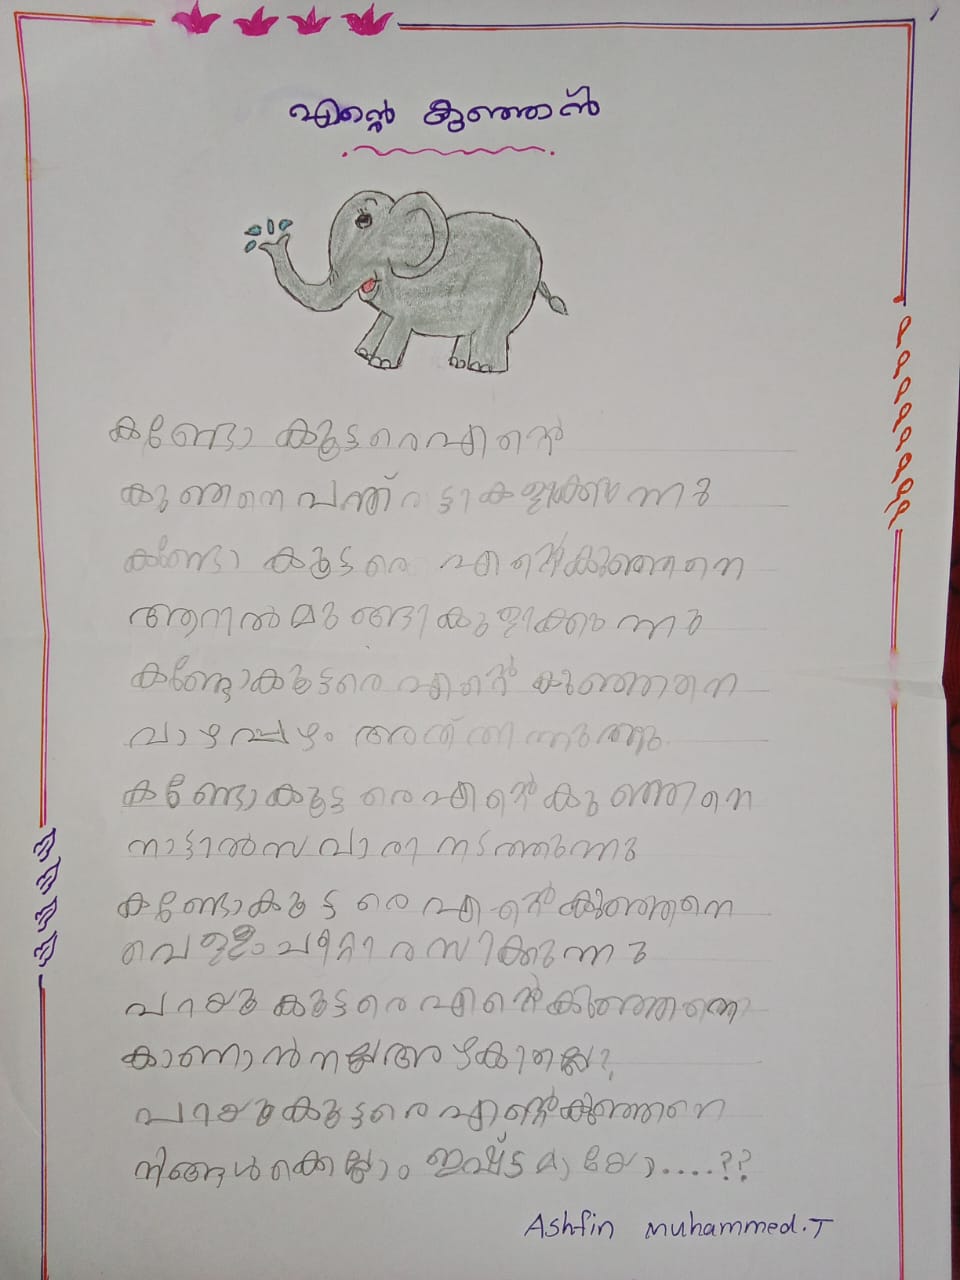 എന്റെ കുഞ്ഞാൻ
കണ്ടോ കൂട്ടരെ എന്റെ
കുഞ്ഞനെ പന്ത് തട്ടി കളിക്കുന്നു
കണ്ടോ കൂട്ടരെ എന്റെ കുഞ്ഞനെ
ആറിൽ മുങ്ങി കുളിക്കുന്നു
കണ്ടോ കൂട്ടരെ എന്റെ കുഞ്ഞനെ
വാഴപ്പഴം
കണ്ടോ കൂട്ടരെ എന്റെ കുഞ്ഞനെ
നാട്ടിൽ സവാരി നടത്തുന്നു
കണ്ടോ കൂട്ടരെ എന്റെ കുഞ്ഞനെ
വെള്ളം ചീറ്റി രസിക്കുന്നു
പറയൂ കൂട്ടരെ എന്റെ കുഞ്ഞനെ
കാണാൻ നല്ല അഴകില്ലേ?
പറയൂ കൂട്ടരെ എന്റെ കുഞ്ഞനെ
നിങ്ങൾക്കെല്ലാം ഇഷ്ട്ടമായോ....??
Ashfin muhammed.T